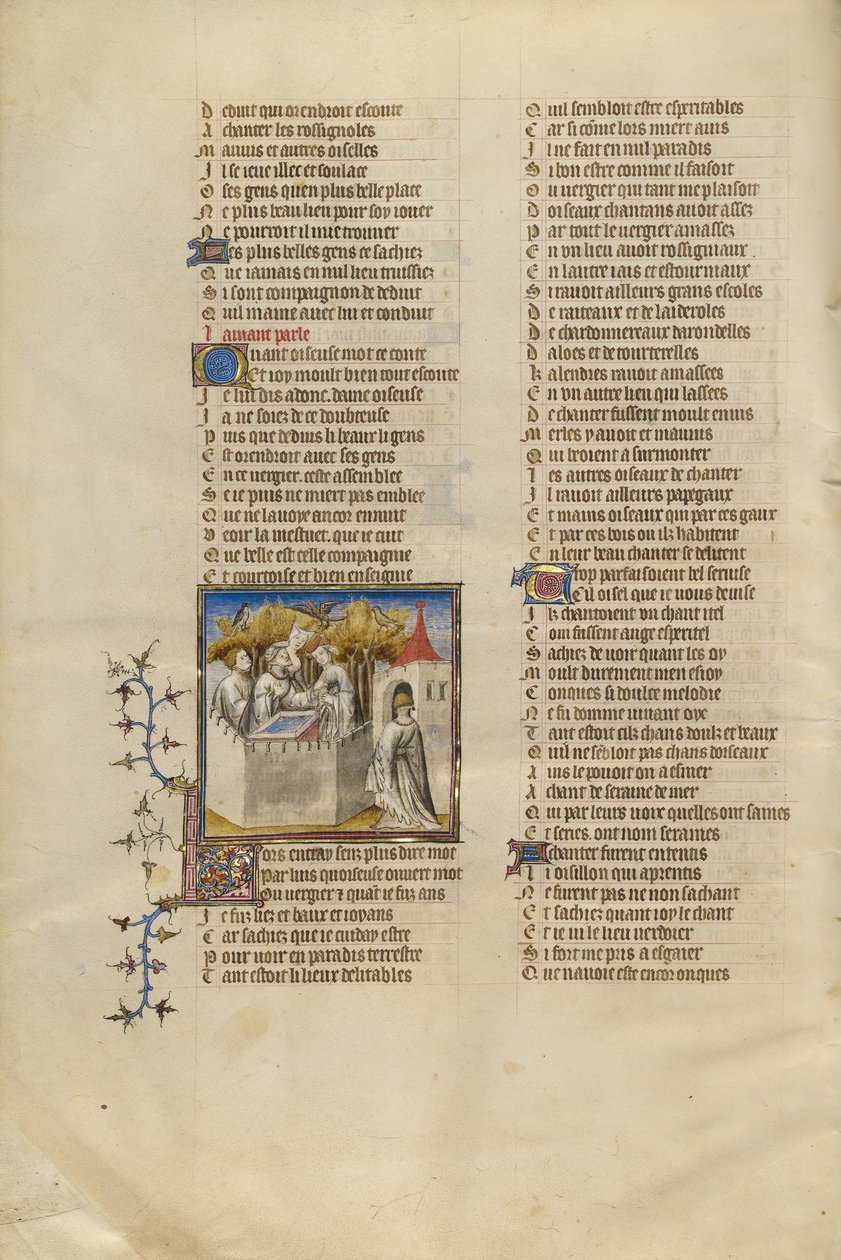 Deduit qui orendroit escoute
A chanter les rossignoles
Mauuis et autres oiselles
Il se ieue illec et soulace
O ses gens quen plus belle place
Ne plus beau lieu pour soy iouer
Ne pourroit il mie trouuer
Les plus belles gens ce sachiez
Que iamais en nul lieu truissiez
Si sont compaignon de deduit
Quil maine auec lui et conduit
Lamant parle
Quant oiseuse mot ce conte
Et ioy moult bien tout escoute
Je lui dis adonc. dame oiseuse
Ja ne soiez de ce doubteuse
Puis que deduis li beaux li gens
Est orendroit auec ses gens
En ce vergier. ceste assemblee
Se ie puis ne miert pas emblee
Que ne lauoye encor ennuit
Veoir la mestuet. que ie cuit
Que belle est celle compaignie
Et courtoise et bien enseignie
Lors entray senz plus dire mot
Par luis quoiseuse ouuert mot
Ou vergier ⁊ quāt ie fuz ans
Je fuz liez et baux et ioyans
Car sachiez que ie cuiday estre
Pour uoir en paradis terrestre
Tant estoit li lieux delitables
Quil sembloit estre esperitables
Car si cōme lors miert auis
Il ne fait en nul paradis
Si bon estre comme il faisoit
Ou uergier qui tant me plaisoit
Doiseaux chantans auoit assez
Par tout le uergier amassez
En vn lieu auoit rossigniaux
En lautre iais et estourniaux
Si rauoit ailleurs grans escoles
De raiteaux et de laideroles
De chardonnereaux darondelles
Daloes et de tourterelles
Kalendres rauoit amassees
En vn autre lieu qui lassees
De chanter fussent moult enuis
Merles y auoit et mauuis
Qui beoient a surmonter
Les autres oiseaux de chanter
Il rauoit ailleurs papegaux
Et mains oiseaux qui par ces gaux
Et par ces bois ou ilz habitent
En leur beau chanter se delitent
Trop parfaisoient bel seruise
Cil oisel que ie vous deuise
Ilz chantoient vn chant itel
Com fussent ange esperitel
Sachiez de uoir quant les oy
Moult durement men esioy
Conques si doulce melodie
Ne fu domme viuant oye
Tant estoit cilz chans doulz et beaux
Quil ne sēbloit pas chans doiseaux
Ains le pouoit on aesmer
A chant de seraine de mer
Qui par leurs uoix quelles ont saines
Et series. ont nom seraines
A chanter furent ententis
Li oisillon qui aprentis
Ne furent pas ne non sachant
Et sachiez quant ioy le chant
Et ie ui le lieu verdoier
Si fort me pris a esgaier
Que nauoie este encor onques